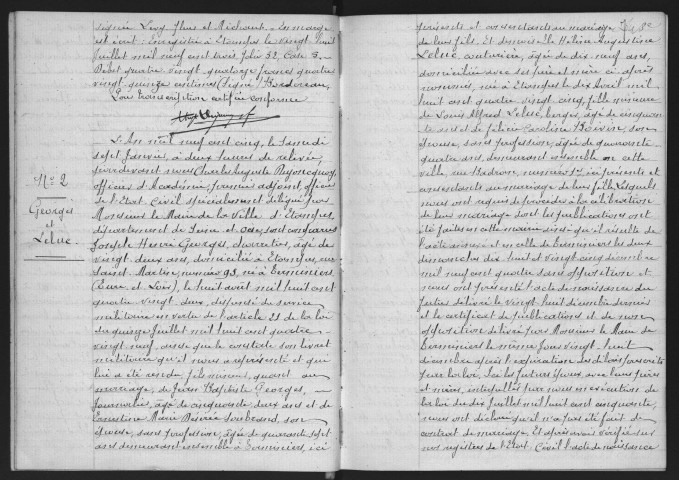 signé Levy, Thus et Michaut. En marge
est écrit: Enregistré à Etampes le vingt huit
juillet mil neuf cent trois, folio 32, Case 5.
Débet quatre vingt quatorze francs quatre
vingt quinze centimes (signé)
Pour transcription certifiée conforme
L'An mil neuf cent cinq, le Samedi
sept Janvier, à deux heures de relevée,
pardevant nous Charles Auguste
officier d'Académie, premier adjoint, officier
de l'Etat Civil spécialement délégué par
Monsieur le Maire de la Ville d'Etampes,
département de Seine et Oise, sont comparus
Joseph Henri Georges, charretier, âgé de
vingt deux ans, domicilié à Etampes, rue
Saint Martin, numéro 93, né à Terminiers
(Eure et Loir), le huit août mil huit cent
quatre vingt deux, dispensé du service
militaire en vertu de l'article 21 de la loi
du quinze Juillet mil huit cent quatre-
vingt neuf, ainsi que le constate son livret
militaire qu'il nous a représenté et qui
lui a été rendu, fils mineur, quant au
mariage, de Jean Baptiste Georges,
journalier, âgé de cinquante deux ans et de
Ernestine Marie Désirée son
épouse, sans profession, âgée de quarante sept
ans demeurant ensemble à Terminiers, ici
No 2
Georges
et
Leluc
présents et consentants au mariage
de leur fils. Et demoiselle Hélène Augustine
Leluc, couturière, âgée de dix neuf ans,
domiciliée avec ses père et mère ci après
nommés, née à Etampes le dix Avril mil
huit cent quatre vingt cinq, fille mineure
de Louis Alfred Leluc, berger, âgé de cinquante
ans et de Félicie Caroline Boivin, son
épouse, sans profession, âgée de quarante
quatre ans, demeurant ensemble en cette
ville, rue Badran, numéro 17, ici présents et
consentants au mariage de leur fille. Lesquels
nous ont requis de procéder à la célébration
de leur mariage dont les publications ont
été faites en cette mairie ainsi qu'il résulte de
l'acte annexé et en celle de Terminiers les deux
dimanches dix huit et vingt cinq décembre
mil neuf cent quatre sans opposition et
nous ont présenté l'acte de naissance du
futur délivré le vingt huit décembre dernier
et le certificat de publications et de non
opposition délivré par Monsieur le Maire de
Terminiers le même jour vingt huit
décembre après l'expiration des délais prescrits
par la loi. Ici les futurs époux, avec leurs pères
et mères, interpellés par nous en exécution de
la loi du dix Juillet mil huit cent cinquante,
nous ont déclaré qu'il n'a pas été fait de
contrat de mariage. Et après avoir vérifié sur
nos registres de l'Etat Civil l'acte de naissance